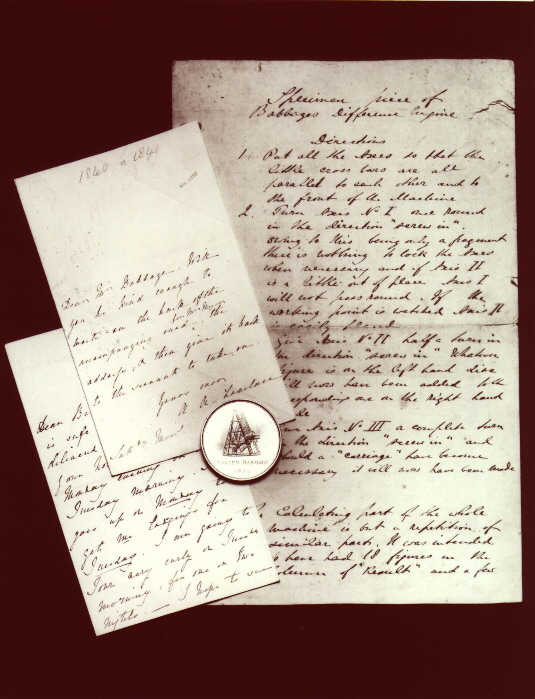 Specimen piece of
Babbages Difference Engine
Directions
1. Put all the Axes so that the
little cross bars are all
parallel to each other and to
the front of the Machine
2. Turn Axis No I one round
in the direction "screw in".
owing to this being only a fragment
there is nothing to lock the Axes
when necessary and if Axis II
is a little out of place Axis I
will not pass round. If the
working point is watched Axis II
easily placed
Axis No II half a turn in
direction "screw in" Whatever
figure is on the left hand disc
will now have been added to the
one on the right hand
Axis No III a complete turn
the direction "screw in" and
should a "carriage" have become
necessary it will now have been made
Calculating part of the whole
machine is but a repetition of
similar parts. It was intended
to have had 18 figures in the
column of "Result" and a few
1840 or 1841
Dear Mr Babbage. Will
you be kind enough to
write on the back of the
accompanying card the
address, & then give it back
to the servant to take on
Yours ever
A. A. Lovelace
Dear Ba
is safe
delivered
your ho
Monday evening or
Tuesday Morning.
goes up on Monday to
get me lodgings for
Tuesday. I am going to
Town very early on Tuesday
morning, for one or two
nights. — I hope to
1872